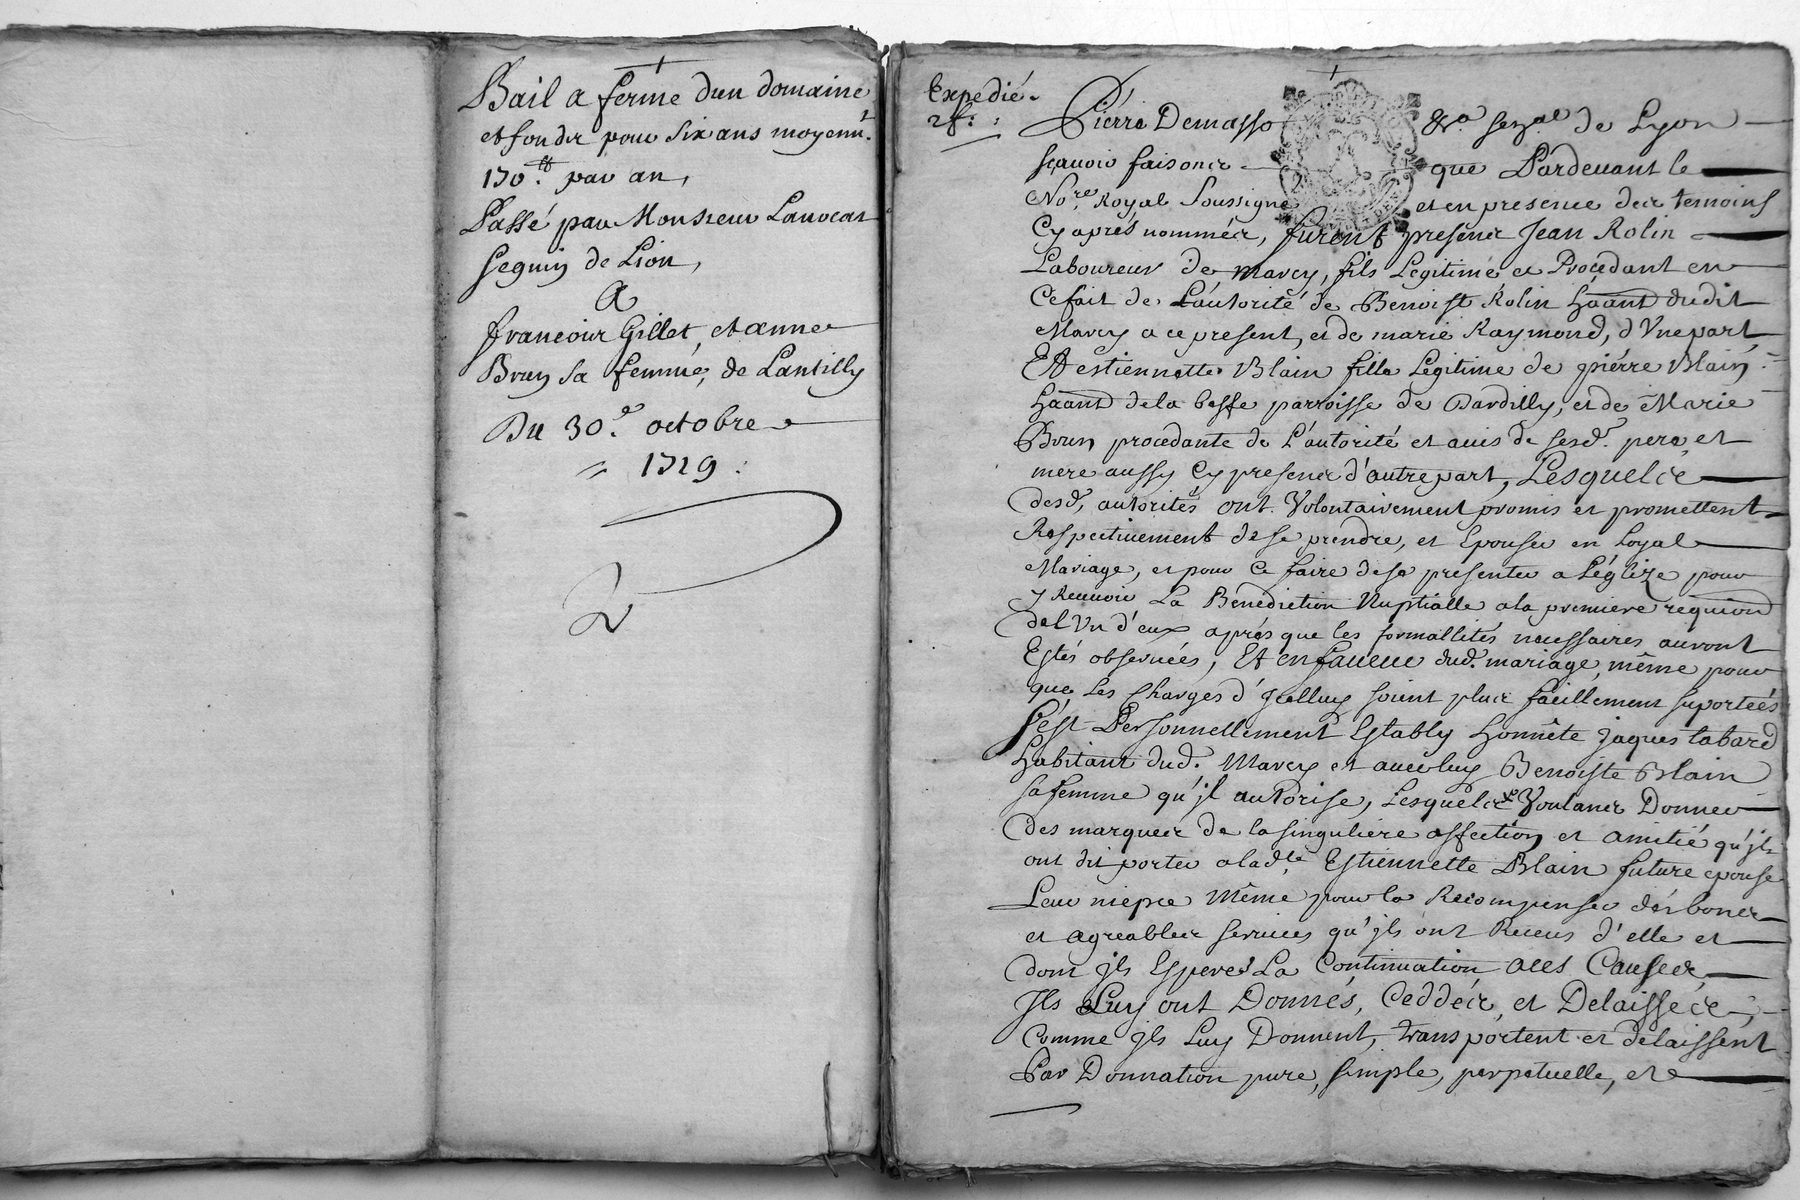 Bail a ferme dun domaine
et fondz pour Six ans moyenn.t
170.tt par an,
Passé par Monsieur Lauocat
Seguin de Lion,
A
francois Gillet, et anne
Brun sa femme, de Lantilly
Du 30.e octobre
1729.
Expedié.
Pierre Demasso &r.a sen.al de Lyon
sçauoir faisons que Pardeuant le
No.re Royal Soussigné et en presence des temoins
Cy aprés nommés, furent presens Jean Rolin
Laboureur de marcy, fils Legitime et Procedant en
Ce fait de L'autorité de Benoist Rolin háànt dudit
Marcy a ce present, et de marie Raymond, d'Vne part
Et estiennette Blain fille Légitime de piérre Blain
háànt de la besse parroisse de Dardilly, et de Marie
Brun procedante de L'autorité et auis de sesd. pere et
mere aussy Cy presens d'autre part, Lesquels
desd. autorités ont Volontairement promis et promettent
Respectiuement de se prendre, et Epouser en Loyal
Mariage, et pour Ce faire de se presenter a L'églize pour
y Receuoir La Benediction Nuptialle a la premiere requi.on
de l'Vn d'eux aprés que les formallités necessaires auront
Estés obseruées, Et en faueur dud. mariage, même pour
que Les Charges d'Jcelluy soient plus facillement suportées
s'est Personnellement Estably honnête jaques tabard
habitant dud. Marcy et auec luy Benoiste Blain
sa femme qu'jl autorise, Lesquels Voulans Donner
des marques de la singuliere affection et amitié qu'jls
ont dit porter a lad.te Estiennette Blain future epouse
Leur niepce même pour la Recompenser des bons
et agreables seruices qu'jls ont Receus d'elle et
dont jls Esperet La Continuation a ces Causes
Jls Luy ont Donnés, Ceddés, et Delaissés,
Comme jls Luy Donnent, transportent et delaissent
Par Donnation pure, simple, perpetuelle, et